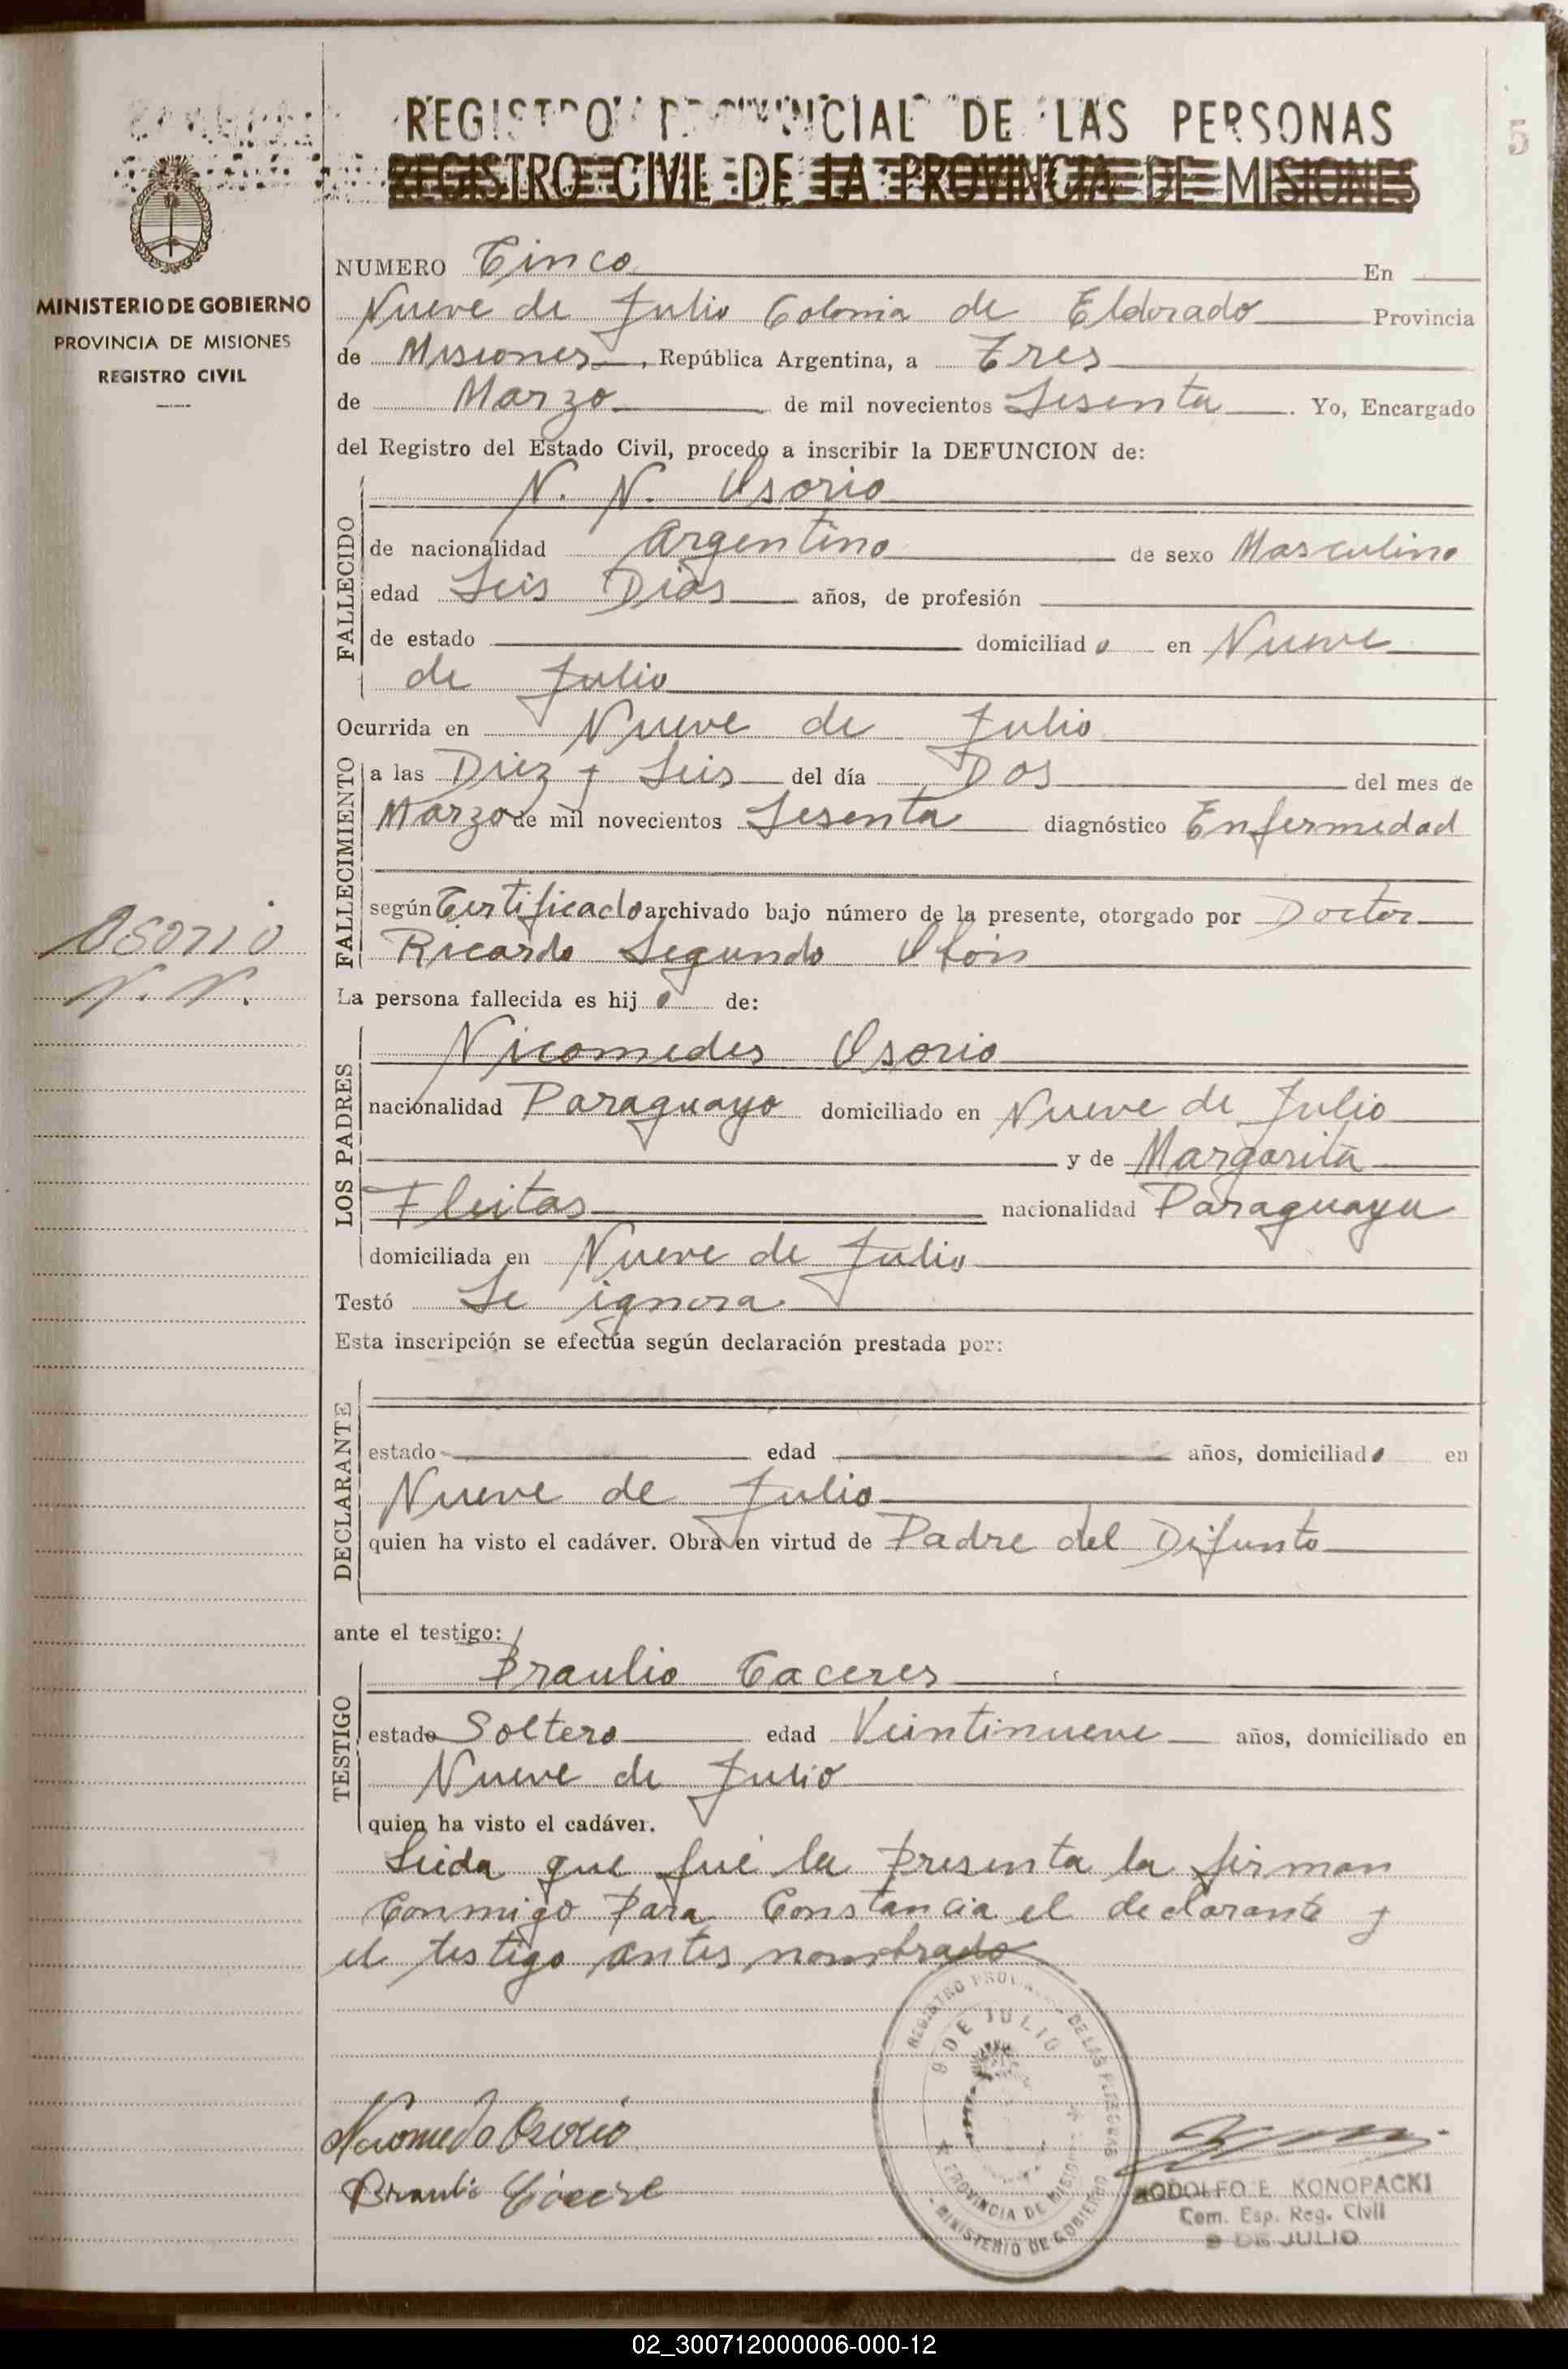 REGISTRO PROVINCIAL DE LAS PERSONAS
REGISTRO CIVIL DE LA PROVINCIA DE MISIONES
5
MINISTERIO DE GOBIERNO
PROVINCIA DE MISIONES
REGISTRO CIVIL
NUMERO Cinco En
Nueve de Julio Colonia de Eldorado Provincia
de Misiones, República Argentina, a Tres
de Marzo de mil novecientos Sesenta. Yo, Encargado
del Registro del Estado Civil, procedo a inscribir la DEFUNCION de:
FALLECIDO
N. N. Osorio
de nacionalidad Argentino de sexo Masculino
edad Seis Dias años, de profesión
de estado domiciliado en Nueve
de Julio
Ocurrida en Nueve de Julio
FALLECIMIENTO
a las Diez y Seis del día Dos del mes de
Marzo de mil novecientos Sesenta diagnóstico Enfermedad
según Certificado archivado bajo número de la presente, otorgado por Doctor
Ricardo Segundo
Osorio
N. N.
La persona fallecida es hijo de:
LOS PADRES
Nicomedes Osorio
nacionalidad Paraguayo domiciliado en Nueve de Julio
y de Margarita
Fleitas nacionalidad Paraguaya
domiciliada en Nueve de Julio
Testó Se ignora
Esta inscripción se efectúa según declaración prestada por:
DECLARANTE
estado edad años, domiciliado en
Nueve de Julio
quien ha visto el cadáver. Obra en virtud de Padre del Difunto
ante el testigo:
TESTIGO
Braulio Caceres
estado Soltero edad Veintinueve años, domiciliado en
Nueve de Julio
quien ha visto el cadáver.
Leida que fué la presenta la firman
Conmigo para Constancia el declarante y
el testigo antes nombrado
REGISTRO PROVINCIAL DE LAS PERSONAS
9 DE JULIO
PROVINCIA DE MISIONES
MINISTERIO DE GOBIERNO
Nicomedes Osorio
Braulio Cácere
RODOLFO E. KONOPACKI
Com. Esp. Reg. Civil
9 DE JULIO
02_300712000006-000-12